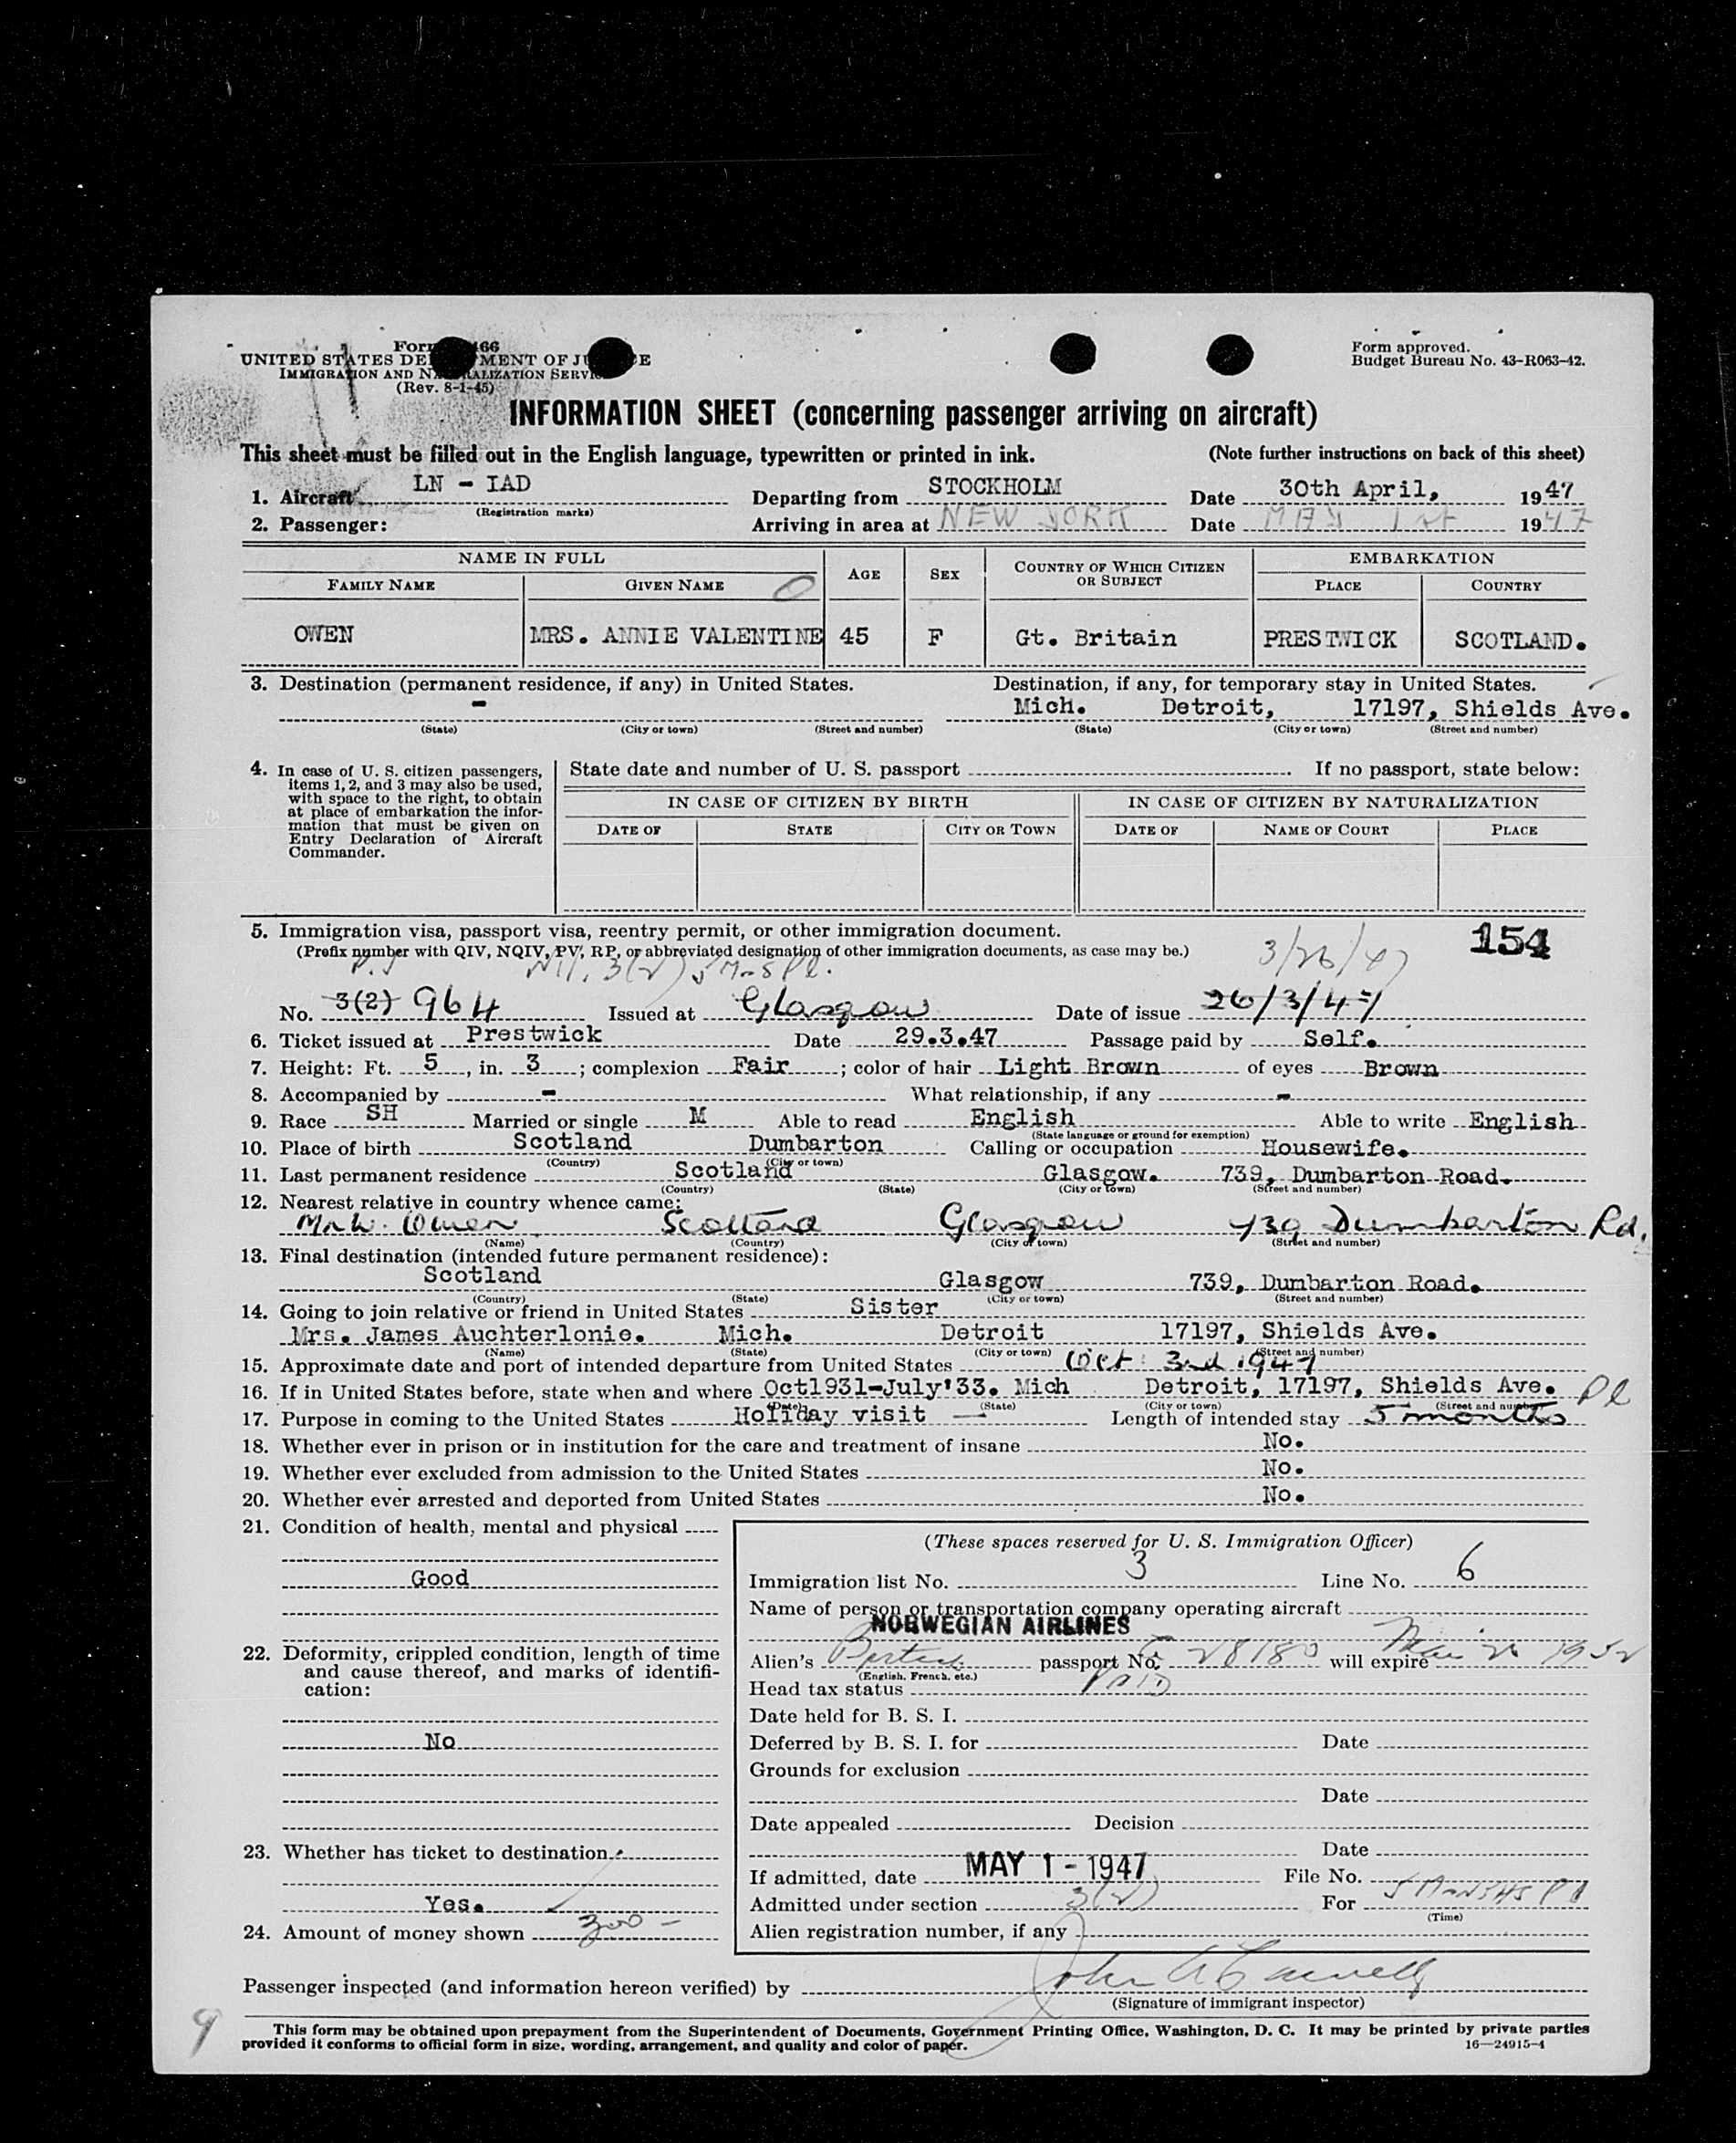 Form 466
UNITED STATES DEPARTMENT OF JUSTICE
IMMIGRATION AND NATURALIZATION SERVICE
(Rev. 8-1-45)
Form approved.
Budget Bureau No. 43-R063-42.
INFORMATION SHEET (concerning passenger arriving on aircraft)
This sheet must be filled out in the English language, typewritten or printed in ink. (Note further instructions on back of this sheet)
1. Aircraft LN - IAD Departing from STOCKHOLM Date 30th April, 1947
(Registration marks)
2. Passenger: Arriving in area at NEW YORK Date MAY 1st 1947
NAME IN FULL AGE SEX COUNTRY OF WHICH CITIZEN OR SUBJECT EMBARKATION
FAMILY NAME GIVEN NAME PLACE COUNTRY
OWEN MRS. ANNIE VALENTINE 45 F Gt. Britain PRESTWICK SCOTLAND.
3. Destination (permanent residence, if any) in United States. Destination, if any, for temporary stay in United States.
- Mich. Detroit, 17197, Shields Ave.
(State) (City or town) (Street and number) (State) (City or town) (Street and number)
4. In case of U. S. citizen passengers, items 1, 2, and 3 may also be used, with space to the right, to obtain at place of embarkation the information that must be given on Entry Declaration of Aircraft Commander.
State date and number of U. S. passport If no passport, state below:
IN CASE OF CITIZEN BY BIRTH IN CASE OF CITIZEN BY NATURALIZATION
DATE OF STATE CITY OR TOWN DATE OF NAME OF COURT PLACE
5. Immigration visa, passport visa, reentry permit, or other immigration document. 154
(Prefix number with QIV, NQIV, PV, RP, or abbreviated designation of other immigration documents, as case may be.) 3/26/47
No. 3(2) 964 Issued at Glasgow Date of issue 26/3/47
6. Ticket issued at Prestwick Date 29.3.47 Passage paid by Self.
7. Height: Ft. 5, in. 3; complexion Fair; color of hair Light Brown of eyes Brown
8. Accompanied by - What relationship, if any -
9. Race SH Married or single M Able to read English Able to write English
(State language or ground for exemption)
10. Place of birth Scotland Dumbarton Calling or occupation Housewife.
(Country) (City or town)
11. Last permanent residence Scotland Glasgow. 739, Dumbarton Road.
(Country) (State) (City or town) (Street and number)
12. Nearest relative in country whence came:
Mr W. Owen Scotland Glasgow 739 Dumbarton Rd.
(Name) (Country) (City or town) (Street and number)
13. Final destination (intended future permanent residence):
Scotland Glasgow 739, Dumbarton Road.
(Country) (State) (City or town) (Street and number)
14. Going to join relative or friend in United States Sister
Mrs. James Auchterlonie. Mich. Detroit 17197, Shields Ave.
(Name) (State) (City or town) (Street and number)
15. Approximate date and port of intended departure from United States Oct 3rd 1947
16. If in United States before, state when and where Oct1931-July'33. Mich Detroit, 17197, Shields Ave. Pl
(Date) (State) (City or town) (Street and number)
17. Purpose in coming to the United States Holiday visit — Length of intended stay 5 months
18. Whether ever in prison or in institution for the care and treatment of insane No.
19. Whether ever excluded from admission to the United States No.
20. Whether ever arrested and deported from United States No.
21. Condition of health, mental and physical
Good
22. Deformity, crippled condition, length of time and cause thereof, and marks of identification:
No
23. Whether has ticket to destination
Yes.
24. Amount of money shown 300 -
(These spaces reserved for U. S. Immigration Officer)
Immigration list No. 3 Line No. 6
Name of person or transportation company operating aircraft
NORWEGIAN AIRLINES
Alien's British passport No. 28180 will expire 1952
(English, French, etc.)
Head tax status PAID
Date held for B. S. I.
Deferred by B. S. I. for Date
Grounds for exclusion
Date
Date appealed Decision
Date
If admitted, date MAY 1 - 1947 File No.
Admitted under section 3(2) For 5 MONTHS Pl
(Time)
Alien registration number, if any
Passenger inspected (and information hereon verified) by John
(Signature of immigrant inspector)
9
This form may be obtained upon prepayment from the Superintendent of Documents, Government Printing Office, Washington, D. C. It may be printed by private parties
provided it conforms to official form in size, wording, arrangement, and quality and color of paper. 16—24915-4